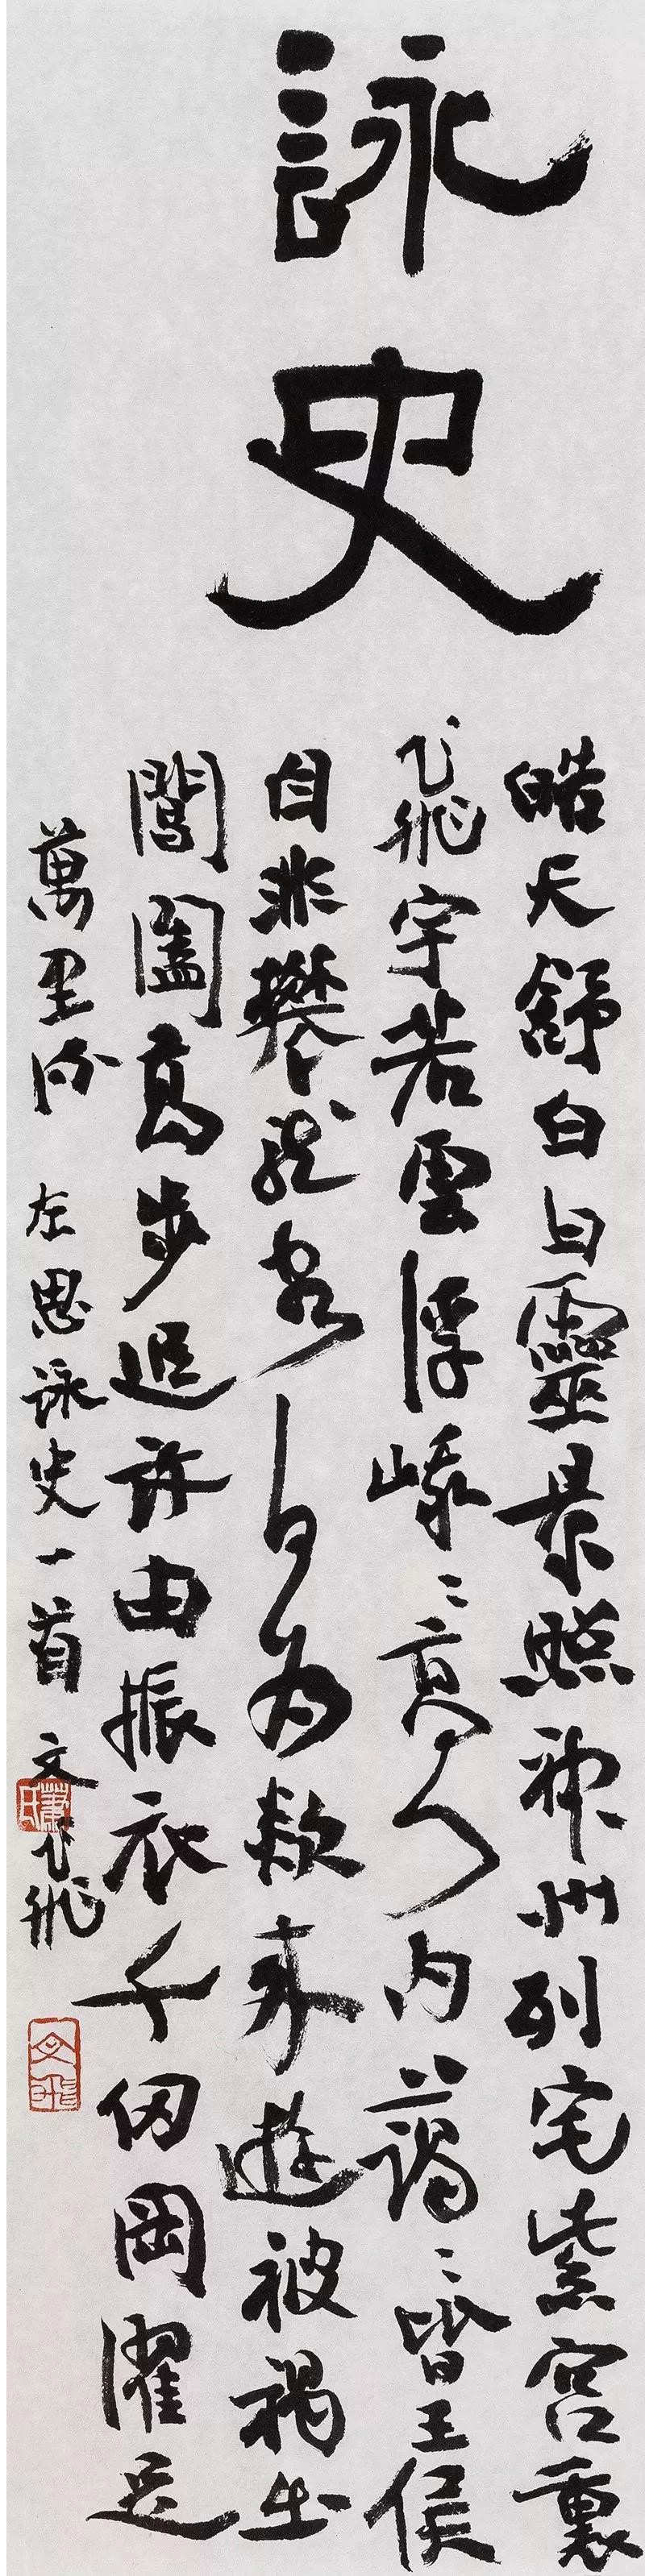 詠史
皓天舒白日靈景照神州列宅紫宮裏
飛宇若雲浮峨〻高門內藹〻皆王侯
自非攀龍客何為欻來遊被褐出
閶闔高步追許由振衣千仞岡濯足
萬里流 左思詠史一首 文飛
蕭氏
文飛